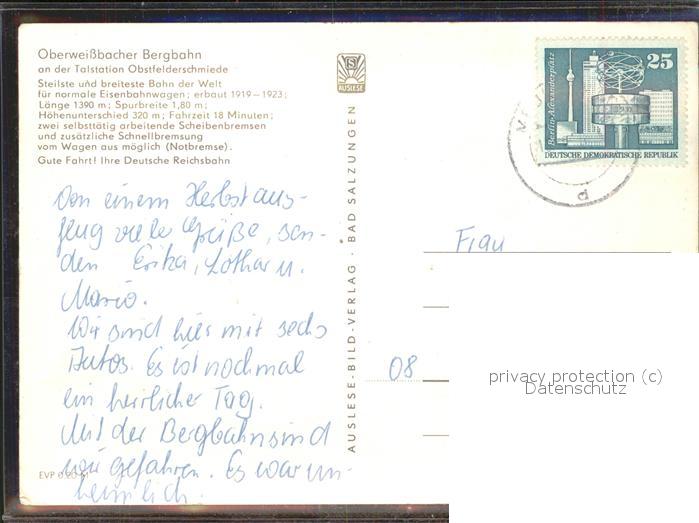 Oberweißbacher Bergbahn
an der Talstation Obstfelderschmiede
Steilste und breiteste Bahn der Welt
für normale Eisenbahnwagen; erbaut 1919–1923;
Länge 1390 m; Spurbreite 1,80 m;
Höhenunterschied 320 m; Fahrzeit 18 Minuten;
zwei selbsttätig arbeitende Scheibenbremsen
und zusätzliche Schnellbremsung
vom Wagen aus möglich (Notbremse).
Gute Fahrt! Ihre Deutsche Reichsbahn
Von einem Herbstaus-
flug viele Grüße, sen-
den Erika, Lothar u.
Mario.
Wir sind hier mit sechs
Autos. Es ist nochmal
ein herrlicher Tag.
Mit der Bergbahn sind
wir gefahren. Es war un-
heimlich.
EVP 0,20 M
AUSLESE
AUSLESE-BILD-VERLAG · BAD SALZUNGEN
Berlin-Alexanderplatz
25
DEUTSCHE DEMOKRATISCHE REPUBLIK
d
Frau
08
privacy protection (c)
Datenschutz